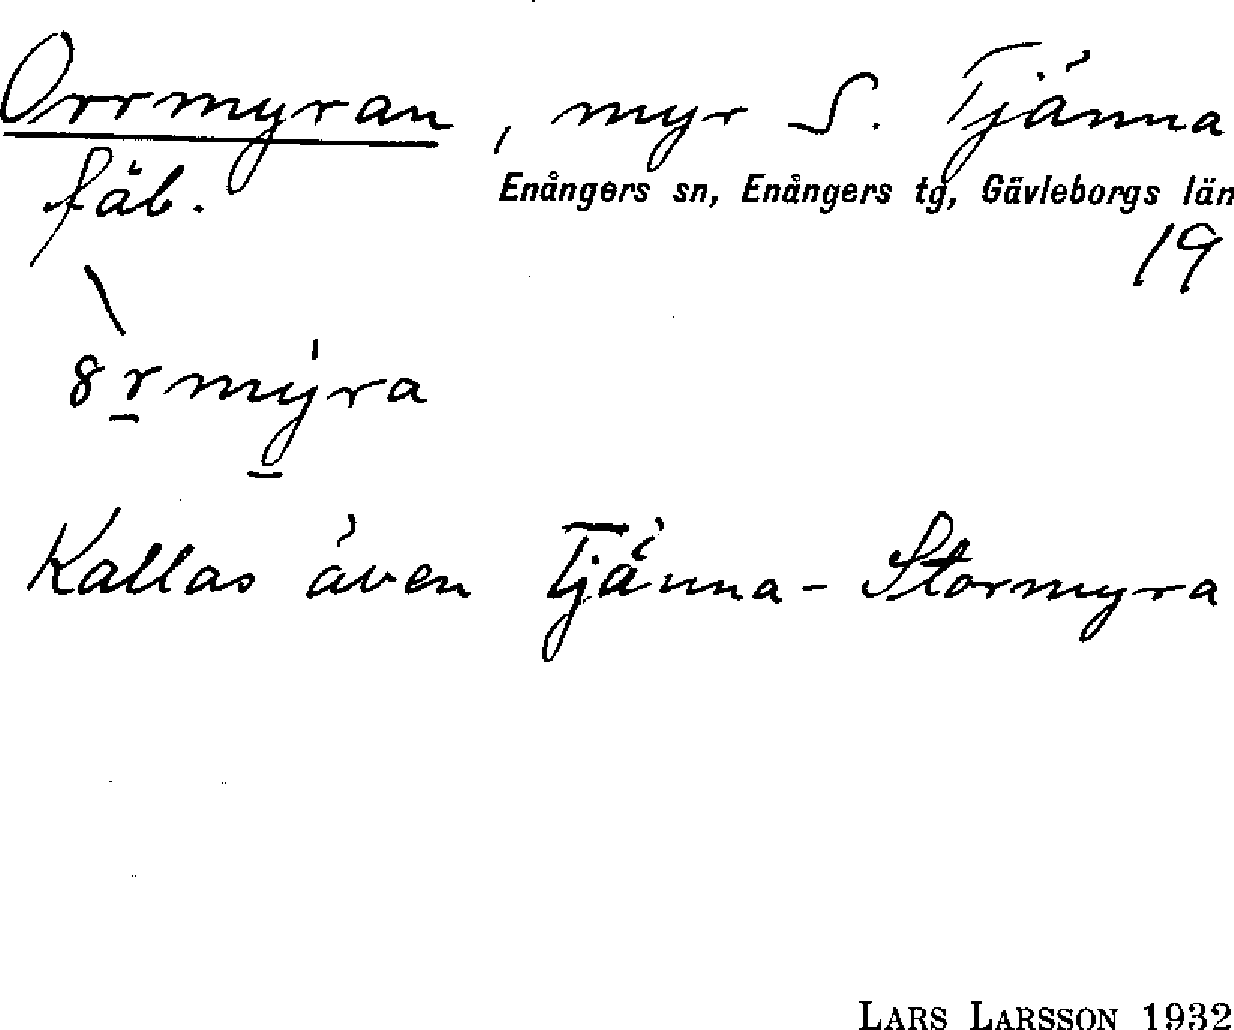 Orrmyran, myr S. Tjänna
fäb.
Enångers sn, Enångers tg, Gävleborgs län
19
\
8rmyra
Kallas även Tjänna-Stormyra
LARS LARSSON 1932